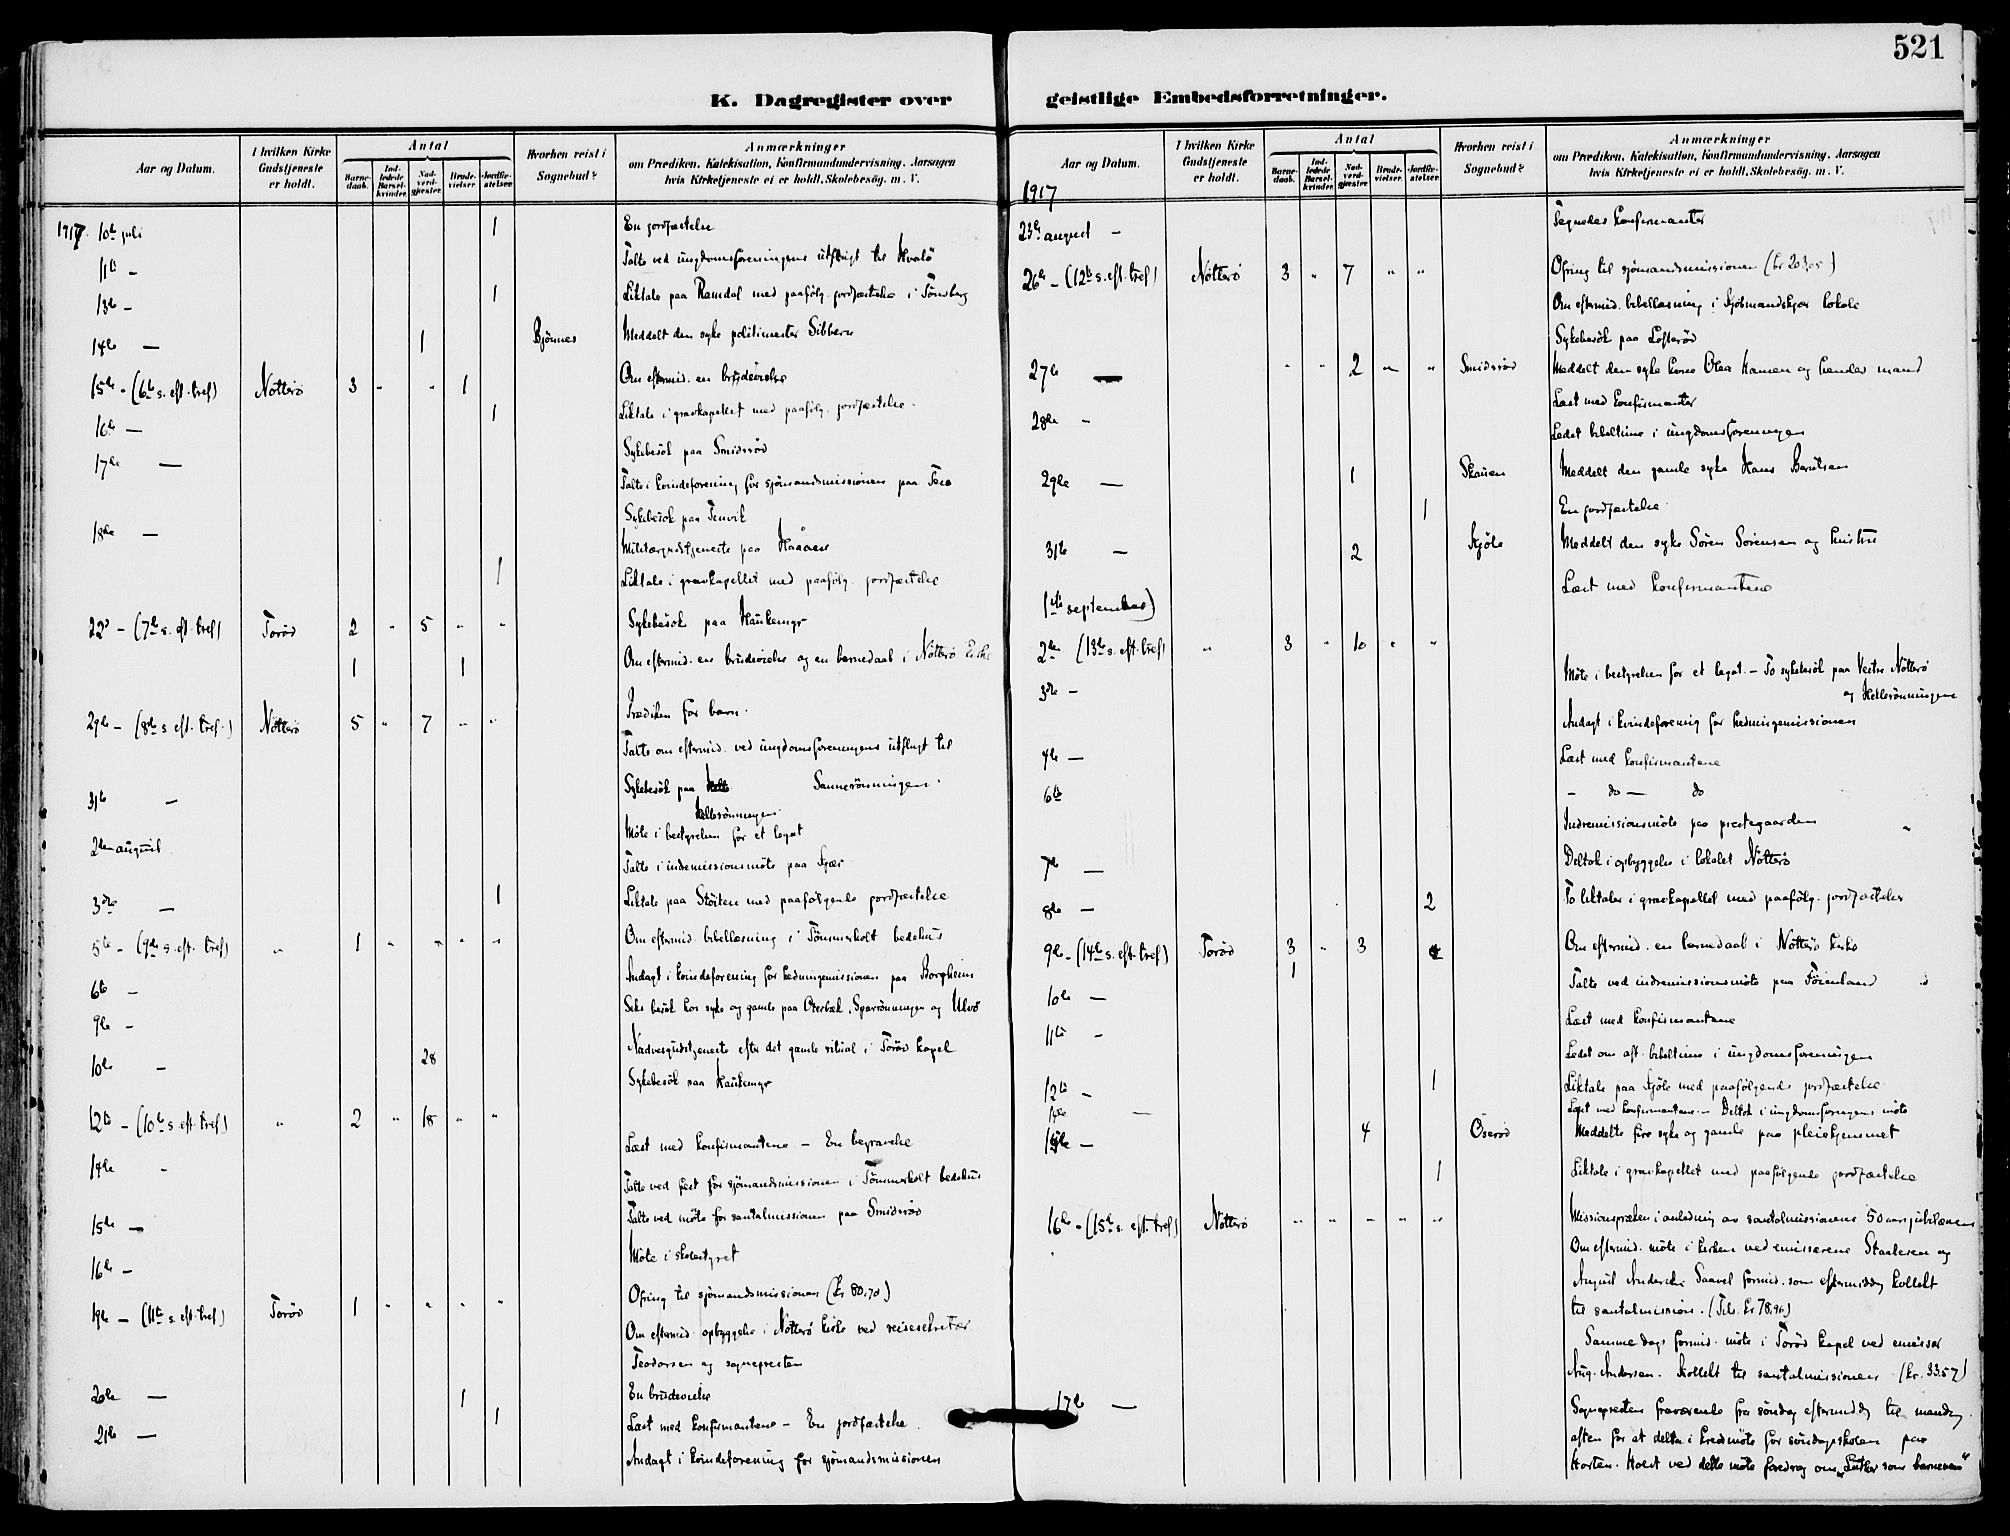 521
K. Dagregister over
geistlige Embedsforretninger.
Aar og Datum.
I hvilken Kirke Gudstjeneste er holdt.
Antal
Barnedaab.
Indledede Barselkvinder.
Nadverdgjæster.
Brudevielser.
Jordfæstelser.
Hvorhen reist i Sognebud?
Anmærkninger
om Prædiken, Katekisation, Konfirmandundervisning, Aarsagen
hvis Kirketjeneste ei er holdt, Skolebesøg, m. V.
1917. 10de juli 1 En jordfæstelse
11te - Talte ved ungdomsforeningens utflugt til Hvalö
13de - 1 Liktale paa Ramdal med paafølg. jordfæstelse i Tønsberg
14de — 1 Bjönnes Meddelt den syke politimester Sibbern
15de - (6te s. eft. tref) Nötterö 3 " " 1 Om eftermid. en brudevielse
16de — 1 Liktale i gravkapellet med paafølg. jordfæstelse.
17de — Sykebesök paa Smidsröd
Talte i kvindeforening for sjömandsmissionen paa
Sykebesök paa Tenvik
18de — Militærgudstjeneste paa Haaöen
1 Liktale i gravkapellet med paafølg. jordfæstelse
22de - (7de s. eft. tref) Toröd 2 " 5 " " Sykebesök paa Haukemyr
1 1 Om eftermid. en brudevielse og en barnedaab i Nötterö kirke
29de - (8de s. eft. tref.) Nötterö 5 " 7 " " Prædiken for barn.
Talte om eftermid. ved ungdomsforeningens utflugt til
31te — Sykebesök paa Sannerönningen.
Hellerönningen
2den august Möte i bestyrelsen for et legat
Talte i indremissionsmöte paa Skjær
3die — 1 Liktale paa Stöiten med paafølgende jordfæstelse
5te - (9de s. eft. tref) " 1 " " " " Om eftermid. bibellæsning i Tömmerholt bedehus
6te - Andagt i kvindeforening for hedningemissionen paa Borgheim
9de - Seks besök hos syke og gamle paa Oterbæk, Sparrönningen og Ulvö
10de - 28 Nadverdgudstjeneste efter det gamle ritual i Toröd kapel
Sykebesök paa Haukemyr
12te - (10de s. eft. tref) " 2 " 18 " "
14de - Læst med konfirmantene - En begravelse
Talte ved fest for sjömandsmissionen i Tömmerholt bedehus
15de — Talte ved möte for santalmissionen paa Smidsröd
16de - Möte i skolestyret
19de - (11te s. eft. tref) Toröd 1 " " " " Ofring til sjömandsmissionen (kr. 80.70)
Om eftermid. opbyggelse i Nötterö kirke ved reisesekretær
Teodorsen og sognepresten
20de — 1 En brudevielse
21de — 1 Læst med konfirmantene - En jordfæstelse.
Andagt i kvindeforening for sjömandsmissionen
Aar og Datum.
I hvilken Kirke Gudstjeneste er holdt.
Antal
Barnedaab.
Indledede Barselkvinder.
Nadverdgjæster.
Brudevielser.
Jordfæstelser.
Hvorhen reist i Sognebud?
Anmærkninger
om Prædiken, Katekisation, Konfirmandundervisning, Aarsagen
hvis Kirketjeneste ei er holdt, Skolebesøg, m. V.
1917
23de august - Tegnedes konfirmanter
26de - (12te s. eft. tref) Nötterö 3 " 7 " " Ofring til sjömandsmissionen
Om eftermid. bibellæsning i lokale
Sykebesök paa Lofteröd
27de — " " 2 " " Smidsröd Meddelt den syke kone Olea Hansen og hendes mand
Læst med konfirmanter
28de - Ledet bibeltime i ungdomsforeningen
29de — 1 Skauen Meddelt den gamle syke Hans Berntsen
1 En jordfæstelse
31te — 2 Kjöle Meddelt den syke Sören Sörensen og hustru
1ste september) Læst med konfirmantene
2den (13de s. eft. tref) " 3 " 10 " "
3die - Möte i bestyrelsen for et legat. - To sykebesök paa Vestre Nötterö
og Hellerönningen
Andagt i kvindeforening for hedningemissionen
4de — Læst med konfirmantene
6te - do - do
Indremissionsmöte paa prestegaarden
7de — Deltok i opbyggelse i lokalet Nötterö
8de - 2 To liktaler i gravkapellet med paafølg. jordfæstelse
9de - (14de s. eft. tref) Toröd 3 " 3 Om eftermid. en barnedaab i Nötterö kirke
1
10de - Talte ved indremissionsmöte paa Föienland
11te - Læst med konfirmantene
Ledet om aft. bibeltime i ungdomsforeningen
12te - 1 Liktale paa Kjöle med paafølgende jordfæstelse
Læst med konfirmantene. - Deltok i ungdomsforeningens möte
4 Öseröd Meddelte fire syke og gamle paa pleiehjemmet
1 Liktale i gravkapellet med paafølgende jordfæstelse
16de - (15de s. eft. tref) Nötterö " " " " " Missionspræken i anledning av santalmissionens 50 aars jubilæum
Om eftermid. möte i kirken ved emissærene Staalesen og
August Andersen. Saavel formid. som eftermiddag kollekt
til santalmission. (Tils. kr. 78,96)
Samme dags formid. möte i Toröd kapel ved emissær
Aug. Andersen. Kollekt til santalmissionen (kr. 33.57)
17de — Sognepresten fraværende fra söndag eftermiddag til mandag
aften for at delta i kredsmöte for söndagsskolen paa
Horten. Holdt ved dette möte foredrag om „Luther som barneven"